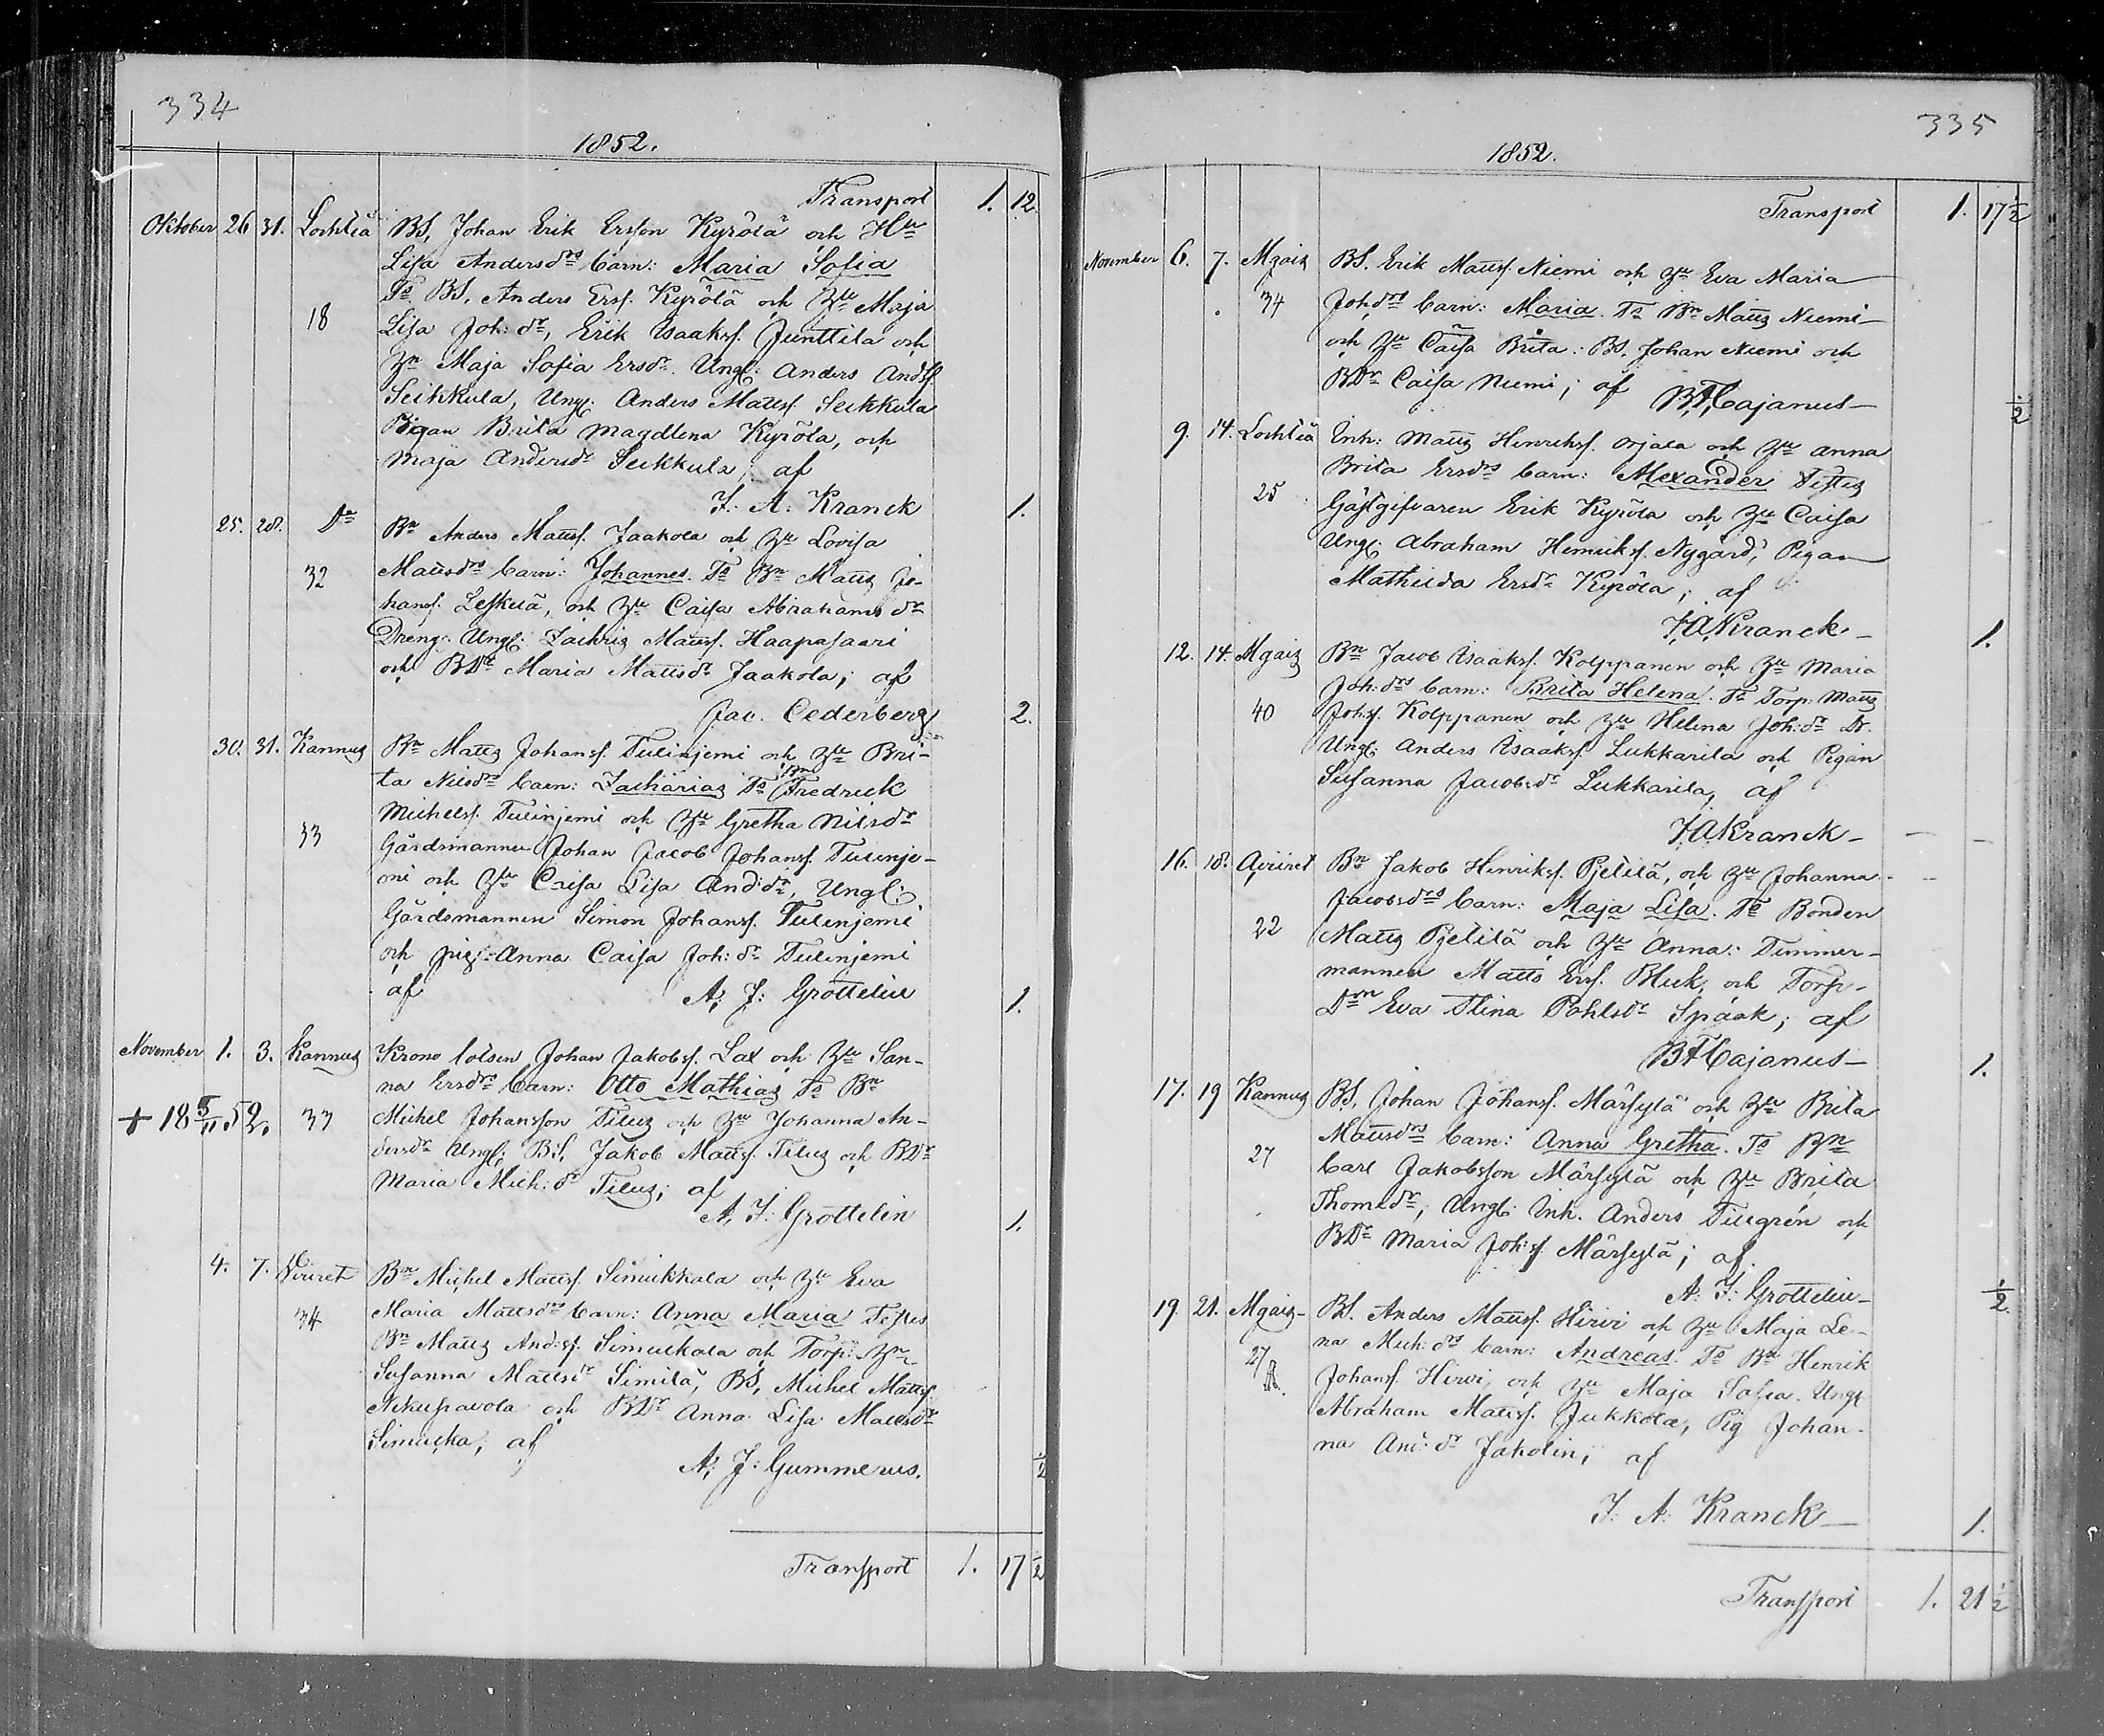 334
1852.
Transport 1. 12.
Oktober 26 31. Lochteå BS, Johan Erik Ersson Kyrölä och Hu
Lisa Andersdrs barn: Maria Sofia
Ts BS, Anders Ersf. Kyrölä och Hu Maja
18 Lisa Joh: dr, Erik Isaaksf. Junttila och
Maja Sofia Ersdr. Ungl: Anders Andsf.
Seikkula, Ungl. Anders Mattsf. Seikkula
Pigan Brita Magdlena Kyrölä, och
Maja Andersdr Seikkula; af
F: A: Kranck 1.
25. 28. Do Bn Anders Mattsf. Jaakola och Hu Lovisa
32 Mattsdrs barn: Johannes. Ts Bn Matts Jo-
hansf. Leskelä, och Hu Caisa Abrahamsdr
Dreng. Ungl: Zachris Mattsf. Haapasaari
och BDr Maria Mattsdr Jaakola; af
Jac. Cederberg 2.
30. 31. Kannus Bn Matts Johansf. Tulinjemi och Hu Bri-
ta Nilsdrs barn: Zacharias Ts Bn Fredrick
Michelsf. Tulinjemi och Hu Gretha Nilsdr
33 Gårdsmannen Johan Jacob Johansf. Tulinje-
mi och Hu Caisa Lisa And:dr, Ungl:
Gårdsmannen Simon Johansf. Tulinjemi
och pig: Anna Caisa Joh: dr Tulinjemi
af A. F: Grottelin 1.
November 1. 3. Kannus Krono Johan Jakobsf. Lax och Hu San-
na Ersdrs barn: Otto Mathias Ts Bn
+ 18 5/11 52. 33 Michel Johansson Tilus och Hu Johanna An-
dersdr Ungl: BS, Jakob Mattsf. Tilus och BDr
Maria Mich: dr Tilus; af
A, F: Grottelin 1.
4. 7. Bn Michel Mattsf. Simukkala och Hu Eva
34 Maria Mattsdrs barn: Anna Maria Testes
Bn Matts And:sf. Simukala och Torp:
Susanna Mattsdr Similä, BS, Michel Mattsf.
och BDr Anna Lisa Mattsdr
af
A: J: Gummerus. 1/2
Transport 1. 17 1/2
335
1852.
Transport 1. 17 1/2
November 6. 7. Mgais BS. Erik Mattsf. Niemi och Hu Eva Maria
34 Joh:drs barn: Maria. Ts Bn Matts Niemi
och Hu Caisa Brita: BS. Johan Niemi och
BDr Caisa Niemi; af BFCajanus 1/2
9. 14. Lochteå Inh: Matts Henriksf. Orjala och Hu Anna
Brita Ersdrs barn: Alexander Testes
25 Gästgifvaren Erik Kyrölä och Hu Caisa
Ungl: Abraham Henriksf. Nygård, Pigan
Mathilda Ersdr Kyrölä; af
FAKranck 1.
12. 14. Mgais Bn Jacob Isaaksf. Kolppanen och Hu Maria
Joh:drs barn: Brita Helena. Ts Torp. Matts
40 Johsf. Kolppanen och Hu Helena Joh:dr Do.
Ungl: Anders Isaaksf. Lukkarila och Pigan
Susanna Jacobsdr Lukkarila, af
FAKranck
16. 18. Bn Jakob Henriksf. Pjetilä, och Hu Johanna
Jacobsdrs barn: Maja Lisa. Ts Bonden
22 Matts Pjetilä och Hu Anna: Timmer-
mannen Matts Ersf. Bleck, och Torp-
Drn Eva Stina Pahlsdr Spaak; af
BFCajanus 1.
17. 19 Kannus BS, Johan Johansf. Märsylä och Hu Brita
Mattsdrs barn: Anna Gretha. Ts Bn
27 Carl Jakobsson Märsylä och Hu Brita
Thomsdr, Ungl: Inh. Anders Tillgrén och
BDr Maria Joh:sf. Märsylä; af.
A: F: Grottelin 1/2
19. 21. Mgais BS. Anders Mattsf. Hirvi och Hu Maja Le-
na Mich: drs barn: Andreas. Ts Bn Henrik
27 Johansf. Hirvi, och Hu Maja Safia. Ungl
Abraham Mattsf. Jukkola, Pig Johan-
na And: dr Jakolin; af
F. A: Kranck 1.
Transport 1. 21 1/2